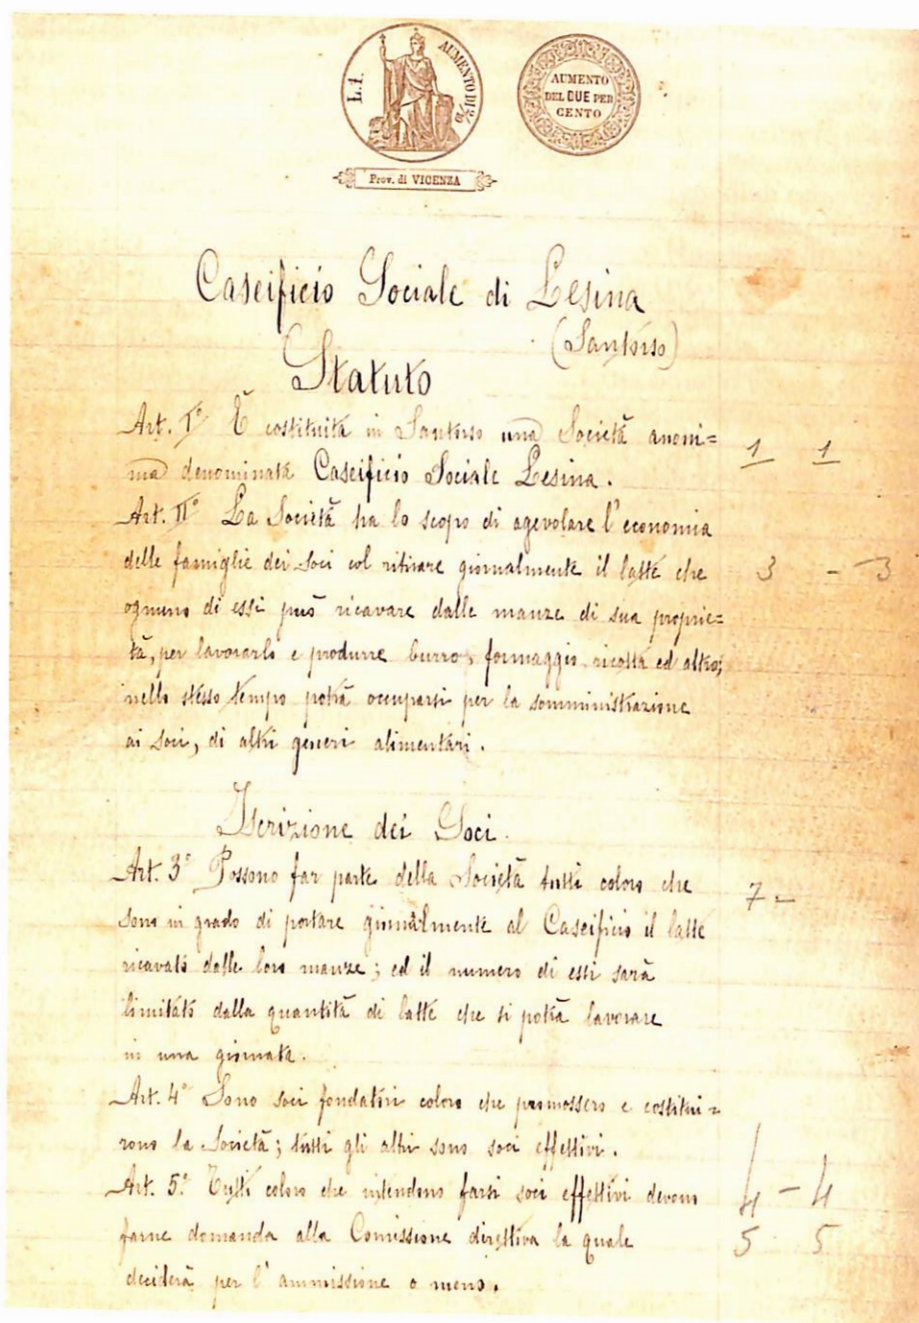 L. 1.
AUMENTO DI 2/10
AUMENTO
DEL DUE PER
CENTO
Prov. di VICENZA
Caseificio Sociale di Lesina
(Santorso)
Statuto
Art. I° È costituita in Santorso una Società anoni=
ma denominata Caseificio Sociale Lesina.
1 1
Art. II° La Società ha lo scopo di agevolare l'economia
delle famiglie dei Soci col ritirare giornalmente il latte che
3 - 3
ognuno di essi può ricavare dalle manze di sua proprie=
tà, per lavorarlo e produrre burro, formaggio, ricotta ed altro;
nello stesso tempo potrà occuparsi per la somministrazione
ai Soci, di altri generi alimentari.
Iscrizione dei Soci.
Art. 3° Possono far parte della Società tutti coloro che
7 -
sono in grado di portare giornalmente al Caseificio il latte
ricavato dalle loro manze; ed il numero di essi sarà
limitato dalla quantità di latte che si potrà lavorare
in una giornata.
Art. 4° Sono soci fondatori coloro che promossero e costitui=
rono la Società; tutti gli altri sono soci effettivi.
Art. 5° Tutti coloro che intendono farsi soci effettivi devono
4 - 4
farne domanda alla Comissione direttiva la quale
5 5
deciderà per l'ammissione o meno.